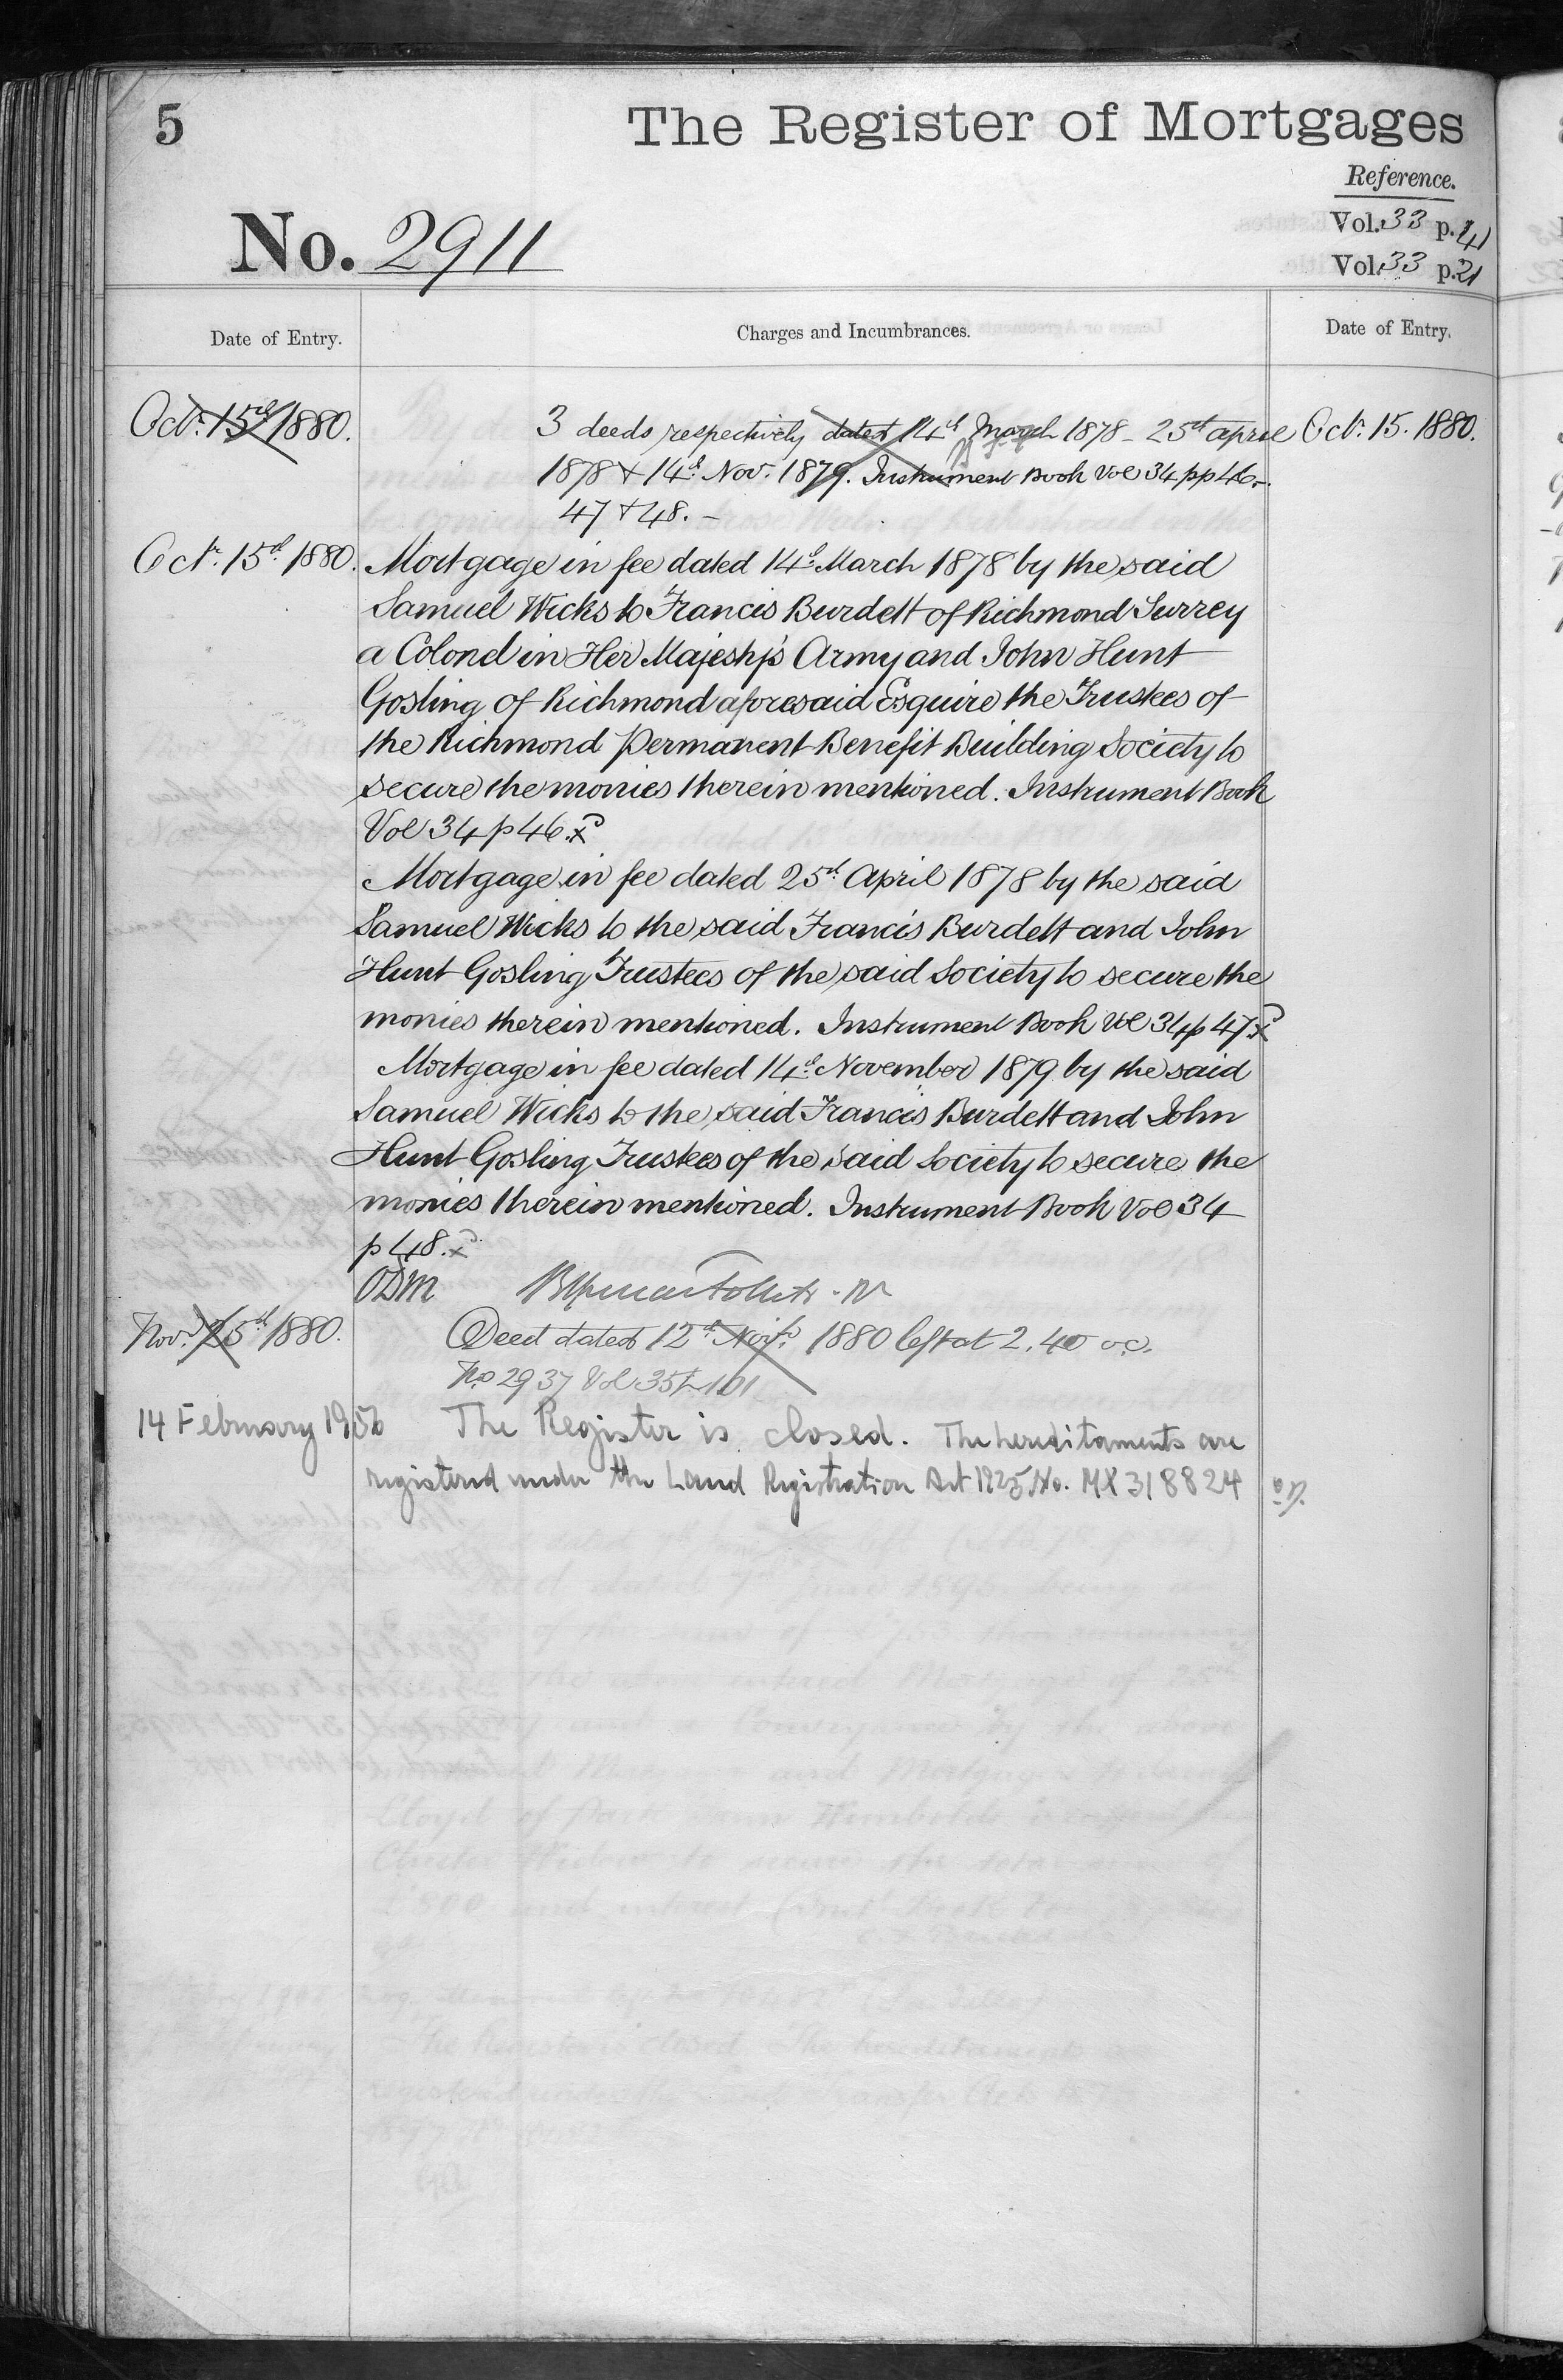 5
The Register of Mortgages
Reference.
No. 2911
Vol. 33 p. 41
Vol. 33 p. 21
Date of Entry.
Charges and Incumbrances.
Date of Entry.
Oct. 15th 1880.
3 deeds respectively dated 14th March 1878 - 25th april
Oct. 15. 1880.
1878 & 14th Nov. 1879. Instrument Book Vol 34 pp 46 -
47 & 48. -
Oct. 15th 1880.
Mortgage in fee dated 14th March 1878 by the said
Samuel Wicks to Francis Burdett of Richmond Surrey
a Colonel in Her Majesty's Army and John Hunt
Gosling of Richmond aforesaid Esquire the Trustees of
the Richmond Permanent Benefit Building Society to
secure the monies therein mentioned. Instrument Book
Vol 34 p 46. x
Mortgage in fee dated 25th April 1878 by the said
Samuel Wicks to the said Francis Burdett and John
Hunt Gosling Trustees of the said Society to secure the
monies therein mentioned. Instrument Book Vol 34 p 47. x
Mortgage in fee dated 14th November 1879 by the said
Samuel Wicks to the said Francis Burdett and John
Hunt Gosling Trustees of the said Society to secure the
monies therein mentioned. Instrument Book Vol 34
p 48. x
ODM
Nov. 25th 1880.
Deed dated 12th 1880 left at 2.40 o.c.
No 2937 Vol 35 101
14 February 1956
The Register is closed. The hereditaments are
registered under the Land Registration Act 1925, No. MX 318824